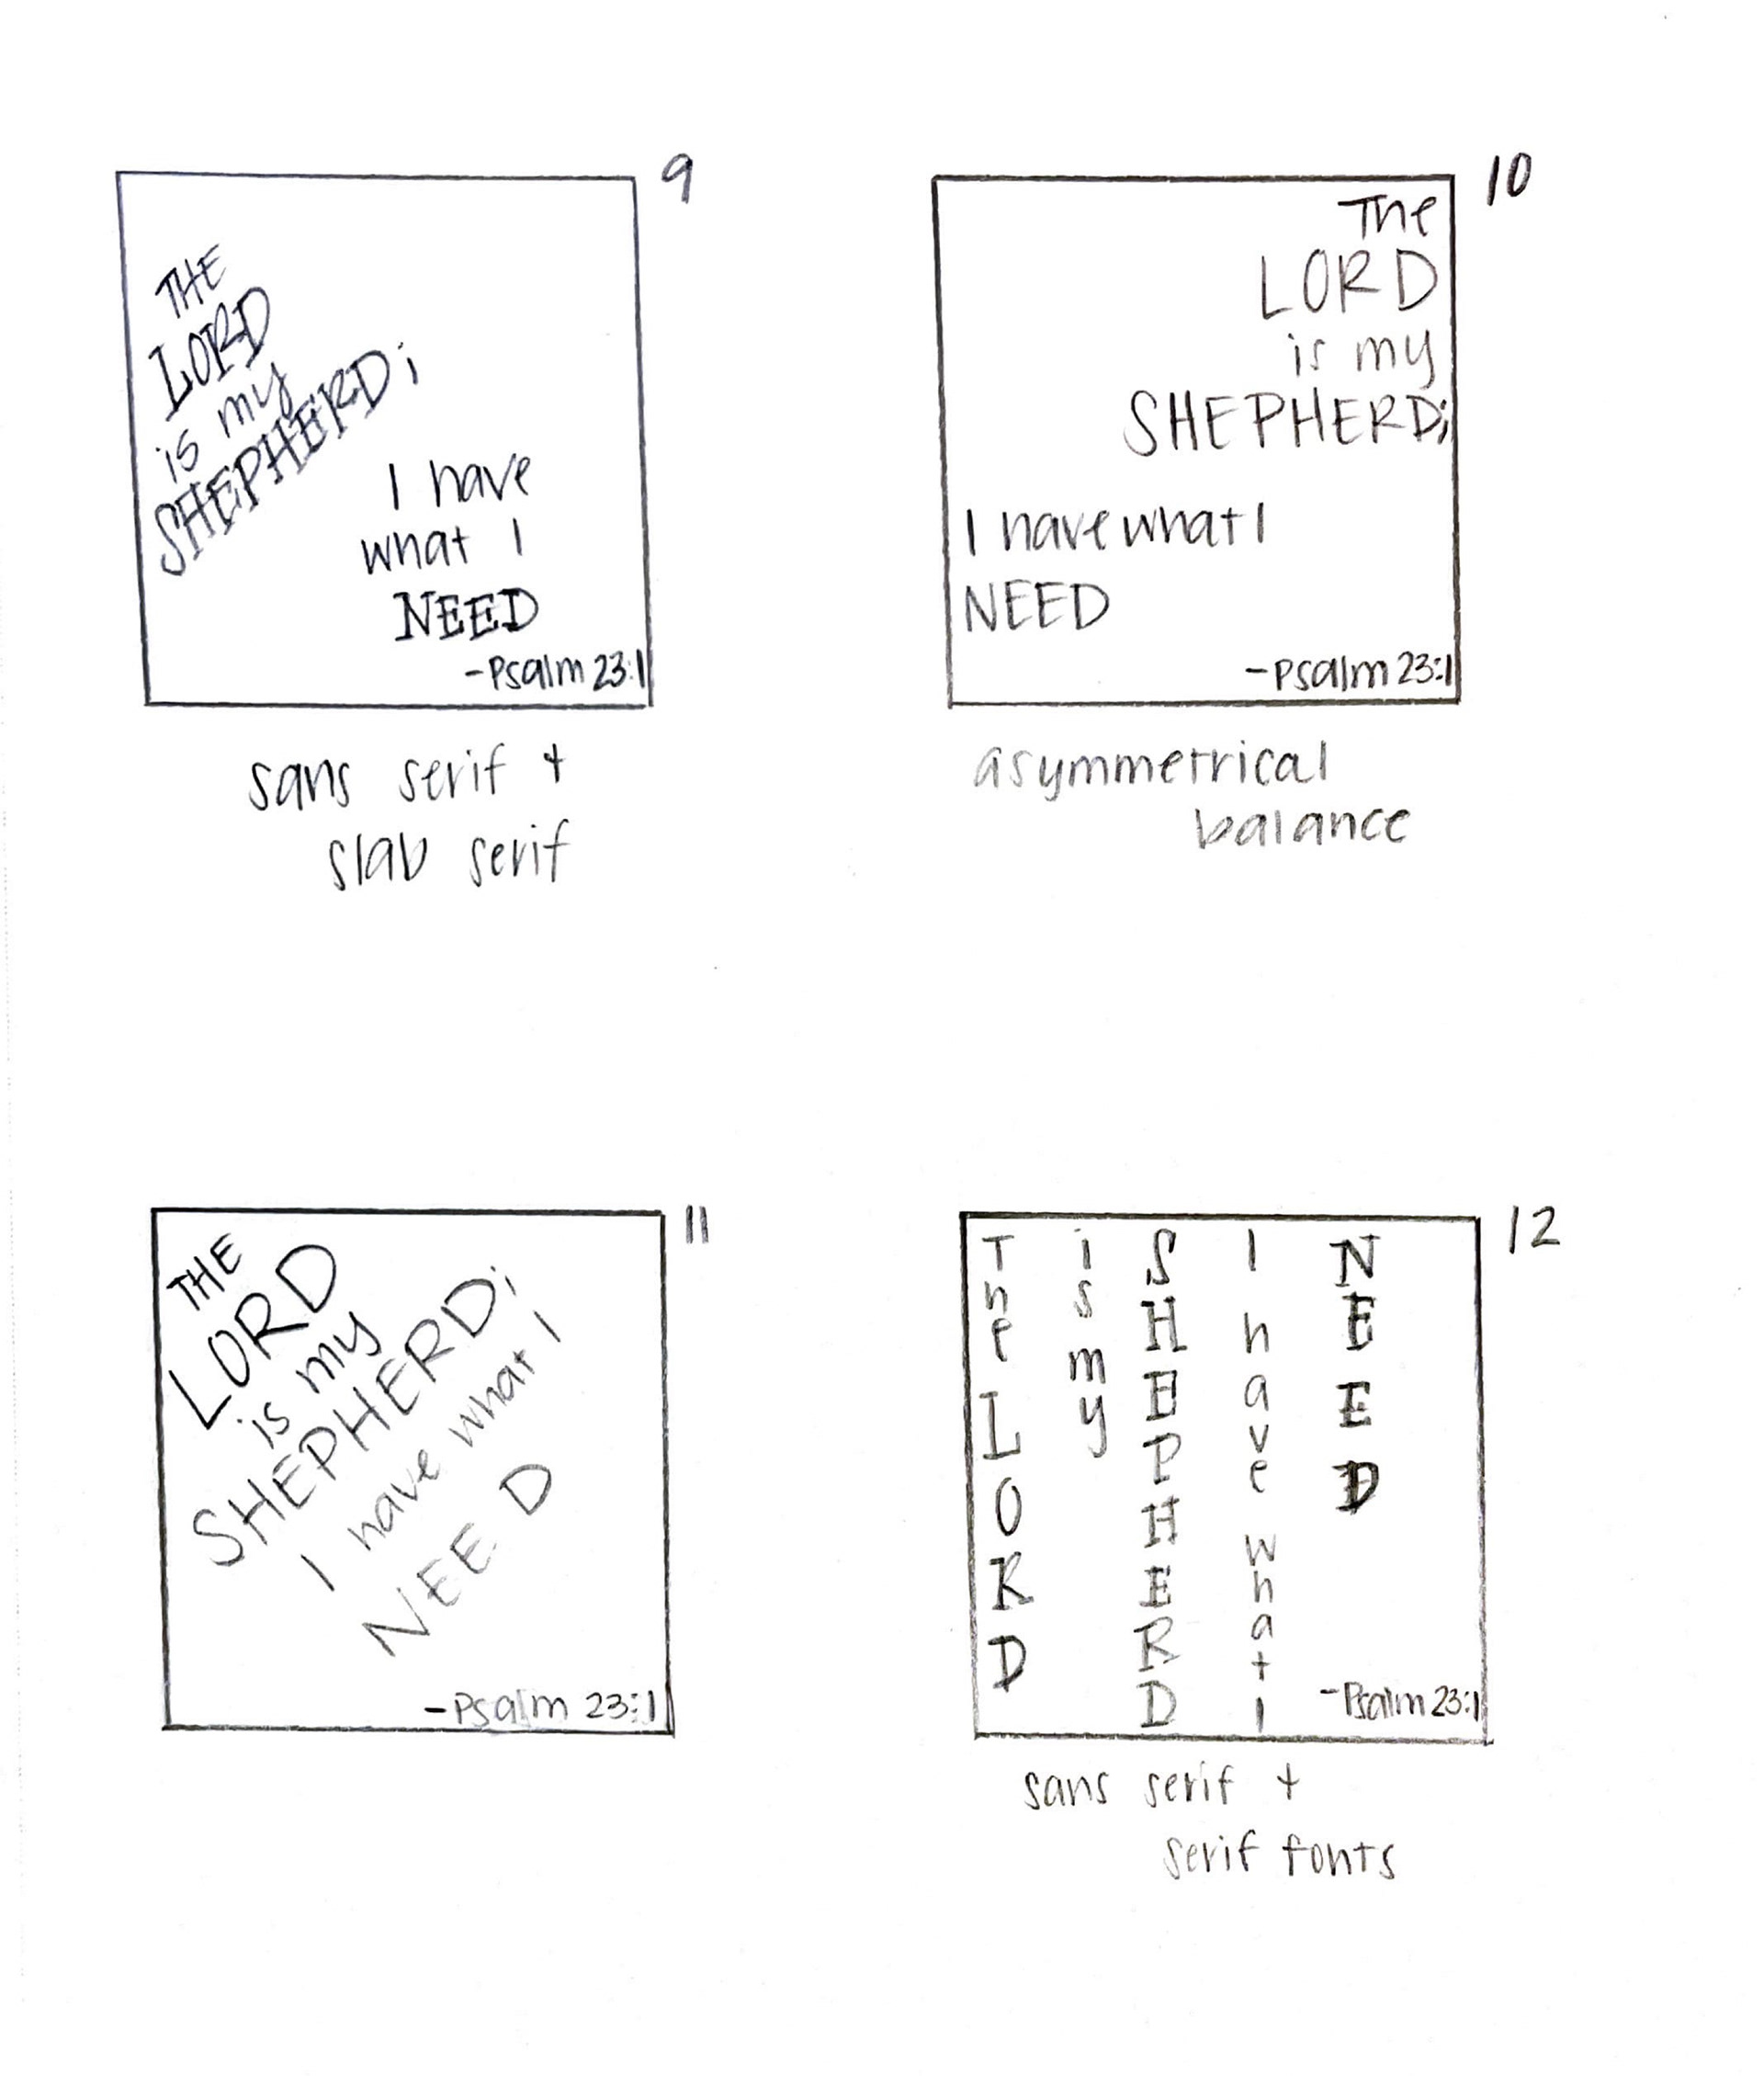 9
THE
LORD
is my
SHEPHERD;
I have
what I
NEED
-Psalm 23:1
sans serif +
slab serif
10
The
LORD
is my
SHEPHERD;
I have what I
NEED
-Psalm 23:1
asymmetrical
balance
11
THE
LORD
is my
SHEPHERD;
I have what I
NEED
-Psalm 23:1
12
The LORD
is my
SHEPHERD
I have what I
NEED
-Psalm 23:1
sans serif +
serif fonts